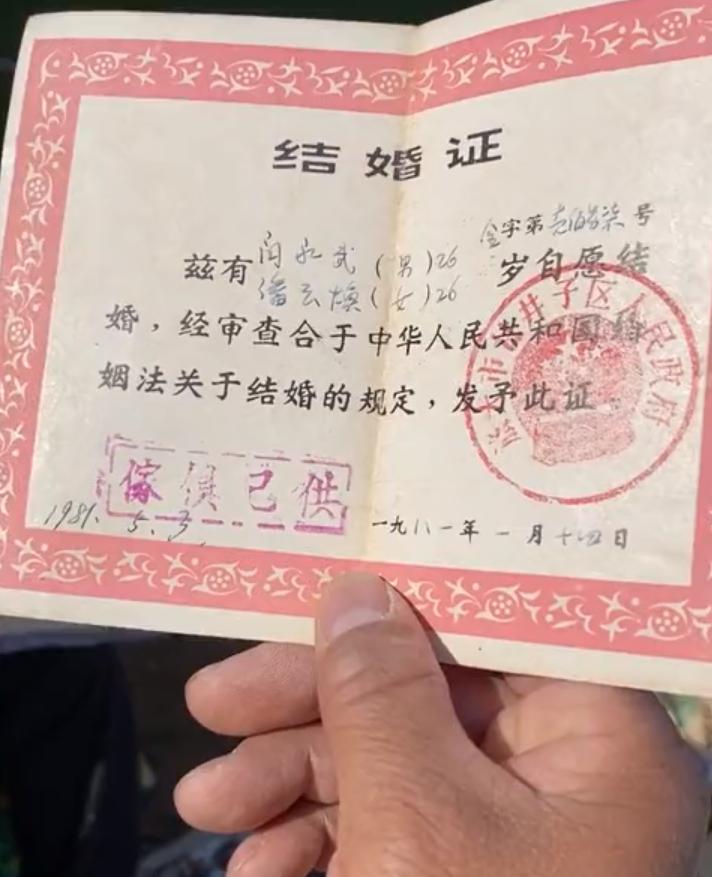 结婚证
金字第 号
兹有闫永武(男)26岁自愿结
潘云焕(女)26
婚，经审查合于中华人民共和国婚
姻法关于结婚的规定，发予此证。
市 井子区人民政府
傢俱已供
1981.5.3.
一九八一年一月十四日